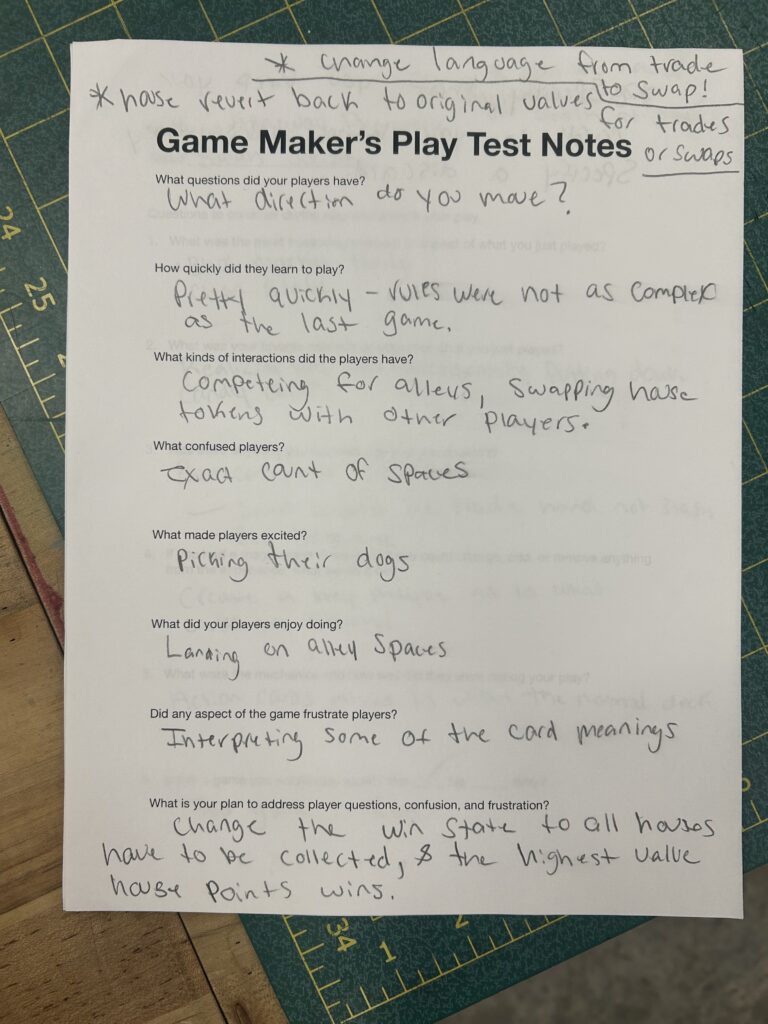 * change language from trade
to swap!
* house revert back to original values
for trades
or swaps
Game Maker's Play Test Notes
What questions did your players have?
What direction do you move?
How quickly did they learn to play?
Pretty quickly - rules were not as complex
as the last game.
What kinds of interactions did the players have?
Competeing for alleys, swapping house
tokens with other players.
What confused players?
Exact count of spaces
What made players excited?
Picking their dogs
What did your players enjoy doing?
Landing on alley spaces
Did any aspect of the game frustrate players?
Interpreting some of the card meanings
What is your plan to address player questions, confusion, and frustration?
Change the win state to all houses
have to be collected, & the highest value
house points wins.
24
25
34
1
2